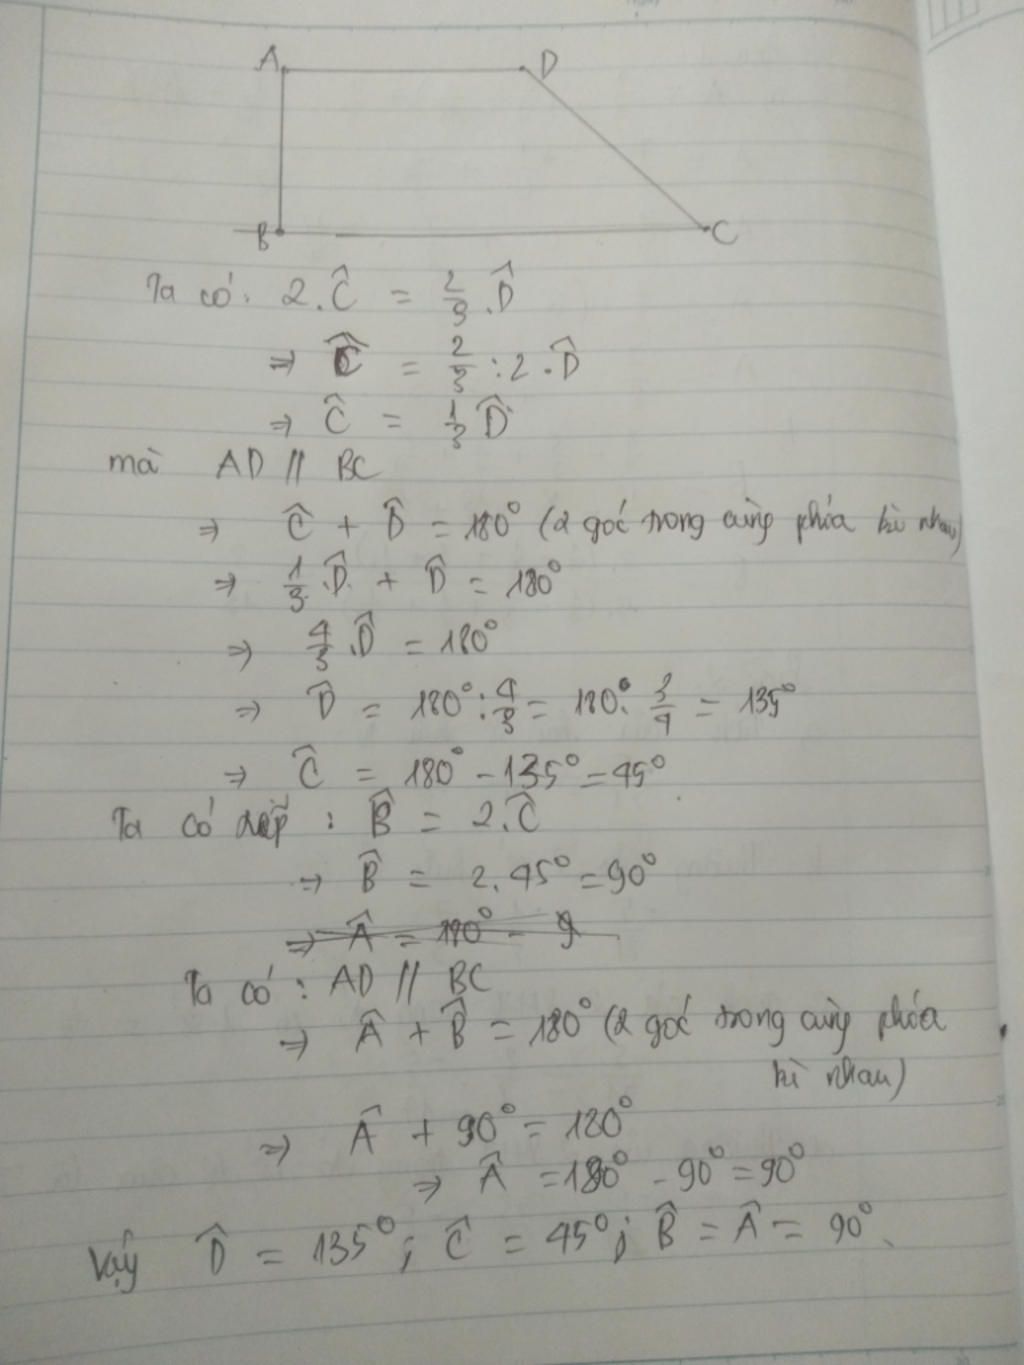 A D
B C
Ta có: 2.Ĉ = 2/3 .D̂
⇒ Ĉ = 2/3 : 2 . D̂
⇒ Ĉ = 1/3 D̂
mà AD // BC
⇒ Ĉ + D̂ = 180° (2 góc trong cùng phía kì nhau)
⇒ 1/3 .D̂ + D̂ = 180°
⇒ 4/3 .D̂ = 180°
⇒ D̂ = 180° : 4/3 = 180°. 3/4 = 135°
⇒ Ĉ = 180° - 135° = 45°
Ta có : B̂ = 2.Ĉ
⇒ B̂ = 2. 45° = 90°
⇒ Â = 180° - 9
Ta có : AD // BC
⇒ Â + B̂ = 180° (2 góc trong cùng phía
kì nhau)
⇒ Â + 90° = 180°
⇒ Â = 180° - 90° = 90°
Vậy D̂ = 135°; Ĉ = 45°; B̂ = Â = 90°.